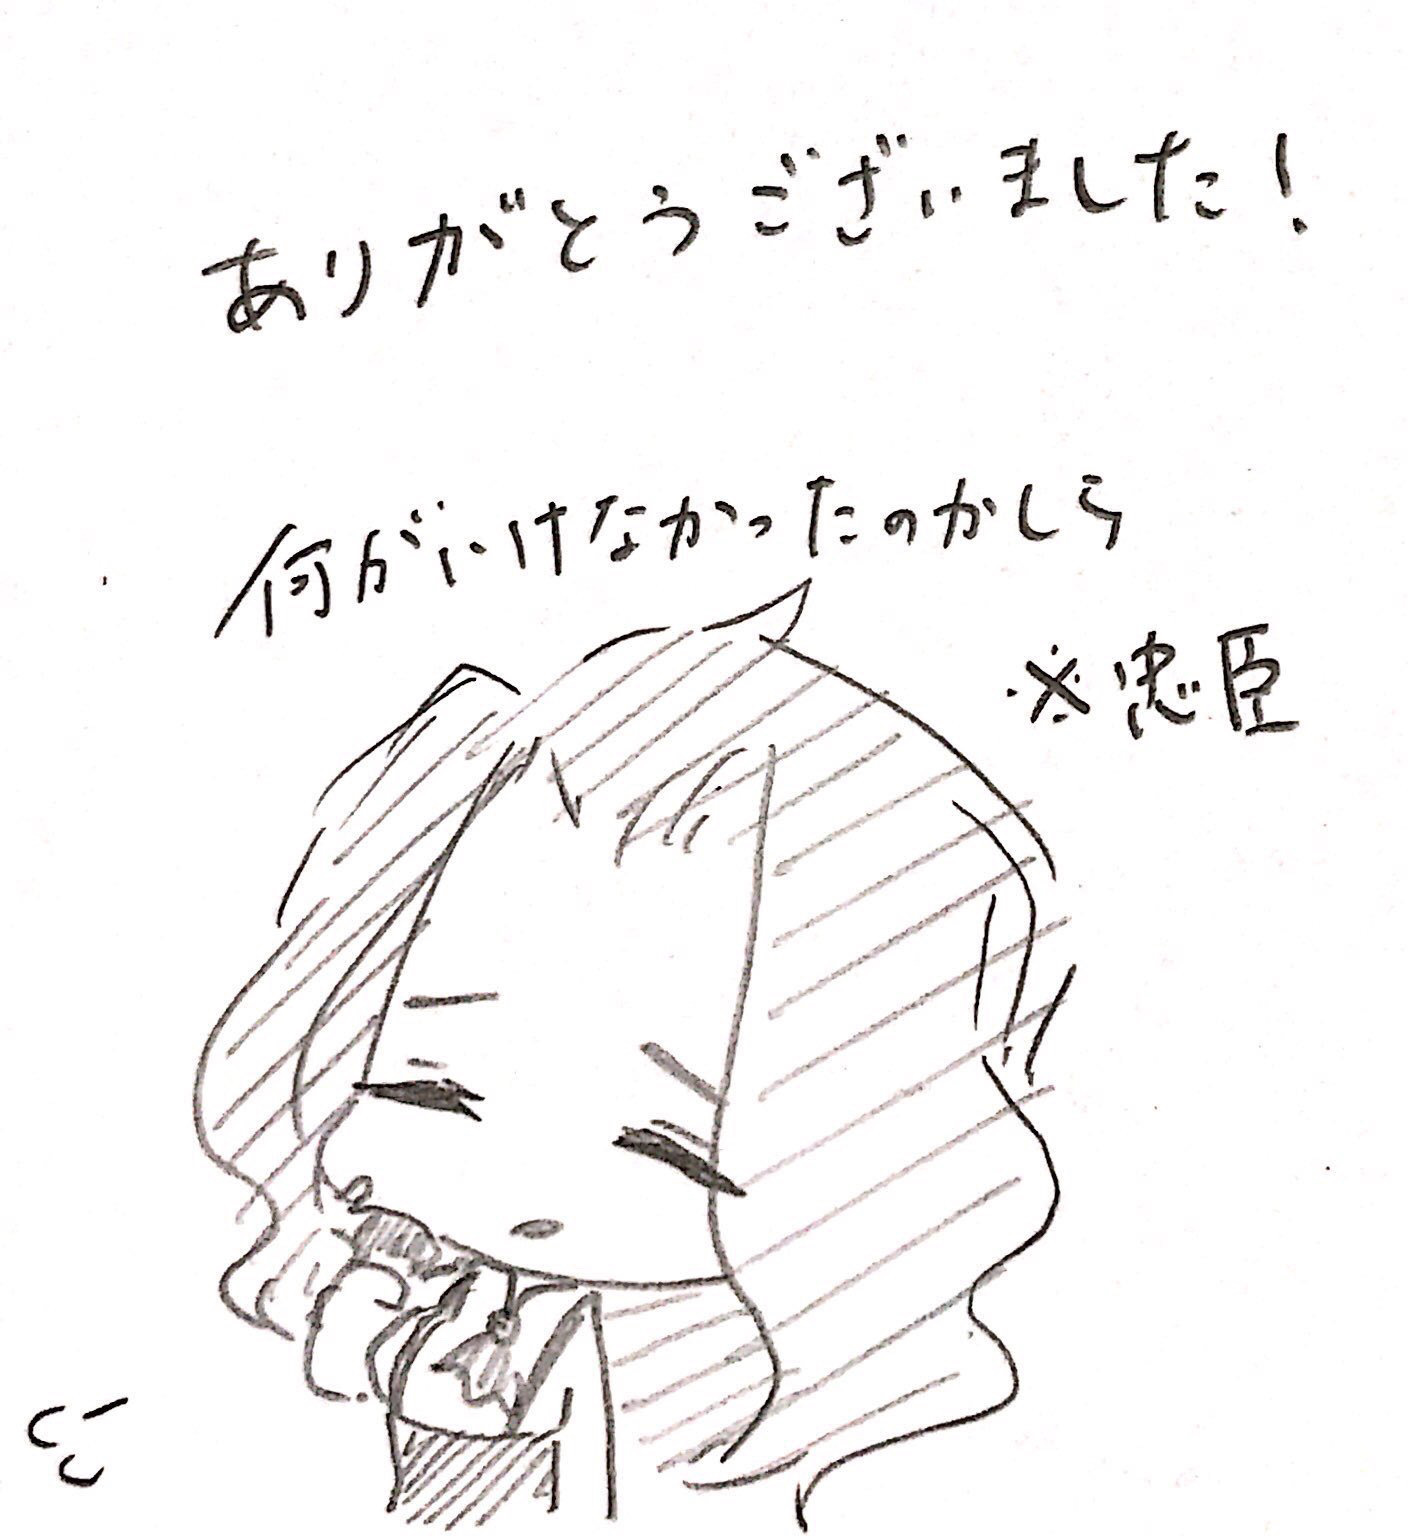 ありがとうございました!
何がいけなかったのかしら
※忠臣